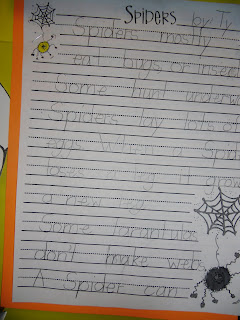 SPIDERS by Ty
Spiders mostly
eat bugs or insec
Some hunt underw
Spiders lay lots of
eggs. When a Spid
loses a leg it grow
a new leg.
Some tarantulas
don't make web
A Spider can